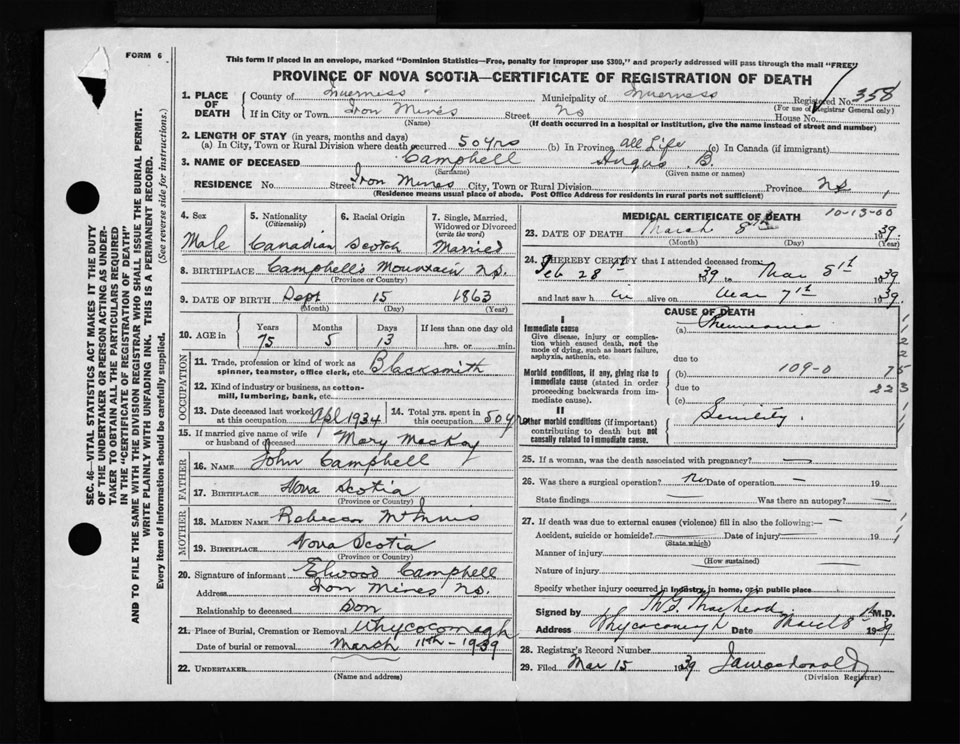 FORM 6
This form if placed in an envelope, marked "Dominion Statistics—Free, penalty for improper use $300," and properly addressed will pass through the mail "FREE"
PROVINCE OF NOVA SCOTIA—CERTIFICATE OF REGISTRATION OF DEATH
SEC. 46—VITAL STATISTICS ACT MAKES IT THE DUTY
OF THE UNDERTAKER OR PERSON ACTING AS UNDER-
TAKER TO OBTAIN ALL THE PARTICULARS REQUIRED
IN THE "CERTIFICATE OF REGISTRATION OF DEATH"
AND TO FILE THE SAME WITH THE DIVISION REGISTRAR WHO SHALL ISSUE THE BURIAL PERMIT.
WRITE PLAINLY WITH UNFADING INK. THIS IS A PERMANENT RECORD.
Every item of Information should be carefully supplied. (See reverse side for instructions.)
1. PLACE OF DEATH
County of Inverness Municipality of Inverness Registered No. 358
(For use of Registrar General only)
If in City or Town Iron Mines Street NS House No.
(Name) (If death occurred in a hospital or institution, give the name instead of street and number)
2. LENGTH OF STAY (in years, months and days)
(a) In City, Town or Rural Division where death occurred 50 yrs (b) In Province all Life (c) In Canada (if immigrant)
3. NAME OF DECEASED Campbell Angus B.
(Surname) (Given name or names)
RESIDENCE No. Street Iron Mines City, Town or Rural Division Province NS
(Residence means usual place of abode. Post Office Address for residents in rural parts not sufficient)
4. Sex Male
5. Nationality (Citizenship) Canadian
6. Racial Origin Scotch
7. Single, Married, Widowed or Divorced (write the word) Married
8. BIRTHPLACE Campbell's Mountain NS.
(Province or Country)
9. DATE OF BIRTH Sept 15 1863
(Month) (Day) (Year)
10. AGE in Years Months Days If less than one day old
75 5 13 hrs. or min.
OCCUPATION
11. Trade, profession or kind of work as spinner, teamster, office clerk, etc. Blacksmith
12. Kind of industry or business, as cotton-mill, lumbering, bank, etc.
13. Date deceased last worked at this occupation Apl 1934
14. Total yrs. spent in this occupation 50 yrs
15. If married give name of wife or husband of deceased Mary MacKay
FATHER
16. NAME John Campbell
17. BIRTHPLACE Nova Scotia
(Province or Country)
MOTHER
18. MAIDEN NAME Rebecca McInnis
19. BIRTHPLACE Nova Scotia
(Province or Country)
20. Signature of informant Elwood Campbell
Address Iron Mines NS.
Relationship to deceased Son
21. Place of Burial, Cremation or Removal Whycocomagh
Date of burial or removal March 11th - 1939
22. UNDERTAKER
(Name and address)
MEDICAL CERTIFICATE OF DEATH 10-13-00
23. DATE OF DEATH March 8th 1939
(Month) (Day) (Year)
24. I HEREBY CERTIFY that I attended deceased from
Feb 28 1939 to Mar 8 1939
and last saw h im alive on Mar 7 1939.
CAUSE OF DEATH
I
Immediate cause (a) Pneumonia
Give disease, injury or complication which caused death, not the mode of dying, such as heart failure, asphyxia, asthenia, etc.
due to
Morbid conditions, if any, giving rise to immediate cause (stated in order proceeding backwards from immediate cause).
(b) 109-0 75
due to 223
(c)
II
Other morbid conditions (if important) contributing to death but not causally related to immediate cause.
Senility.
25. If a woman, was the death associated with pregnancy? —
26. Was there a surgical operation? no Date of operation — 19
State findings Was there an autopsy? —
27. If death was due to external causes (violence) fill in also the following:—
Accident, suicide or homicide? Date of injury 19
(State which)
Manner of injury
(How sustained)
Nature of injury
Specify whether injury occurred in industry, in home, or in public place
Signed by M.D.
Address Whycocomagh Date March 8 1939
28. Registrar's Record Number
29. Filed Mar 15 1939
(Division Registrar)